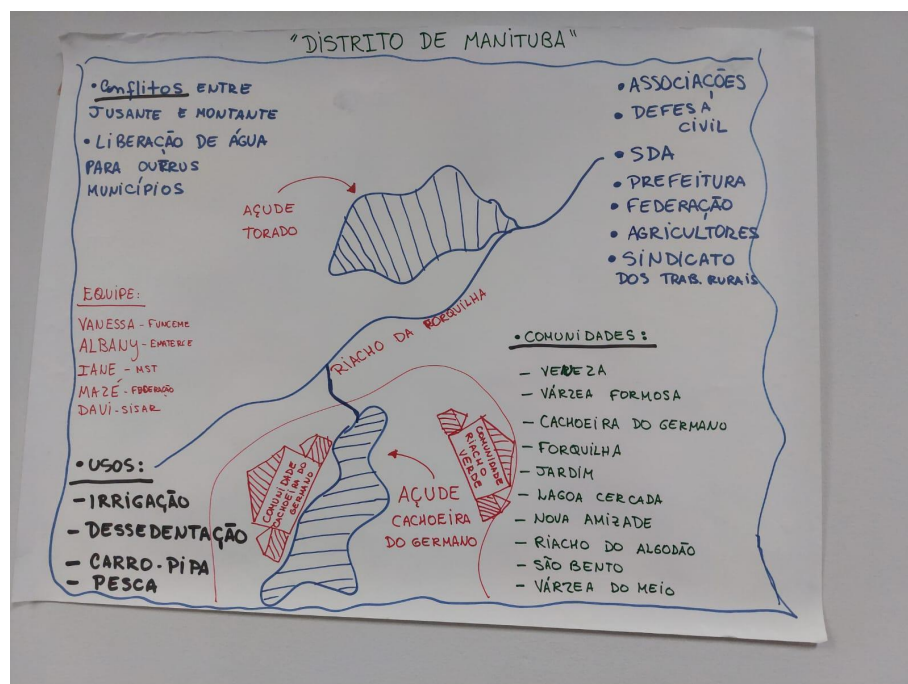 "DISTRITO DE MANITUBA"
• Conflitos ENTRE
JUSANTE E MONTANTE
• LIBERAÇÃO DE ÁGUA
PARA OUTRUS
MUNICÍPIOS
• ASSOCIAÇÕES
• DEFESA
CIVIL
• SDA
• PREFEITURA
• FEDERAÇÃO
• AGRICULTORES
• SINDICATO
DOS TRAB. RURAIS
AÇUDE
TORADO
EQUIPE:
VANESSA - FUNCEME
ALBANY - EMATERCE
IANE - MST
MAZÉ - FEDERAÇÃO
DAVI - SISAR
RIACHO DA FORQUILHA
• COMUNIDADES:
- VENEZA
- VÁRZEA FORMOSA
- CACHOEIRA DO GERMANO
- FORQUILHA
- JARDIM
- LAGOA CERCADA
- NOVA AMIZADE
- RIACHO DO ALGODÃO
- SÃO BENTO
- VÁRZEA DO MEIO
• USOS:
- IRRIGAÇÃO
- DESSEDENTAÇÃO
- CARRO-PIPA
- PESCA
COMUNIDADE
CACHOEIRA DO
GERMANO
AÇUDE
CACHOEIRA
DO GERMANO
COMUNIDADE
RIACHO
VERDE